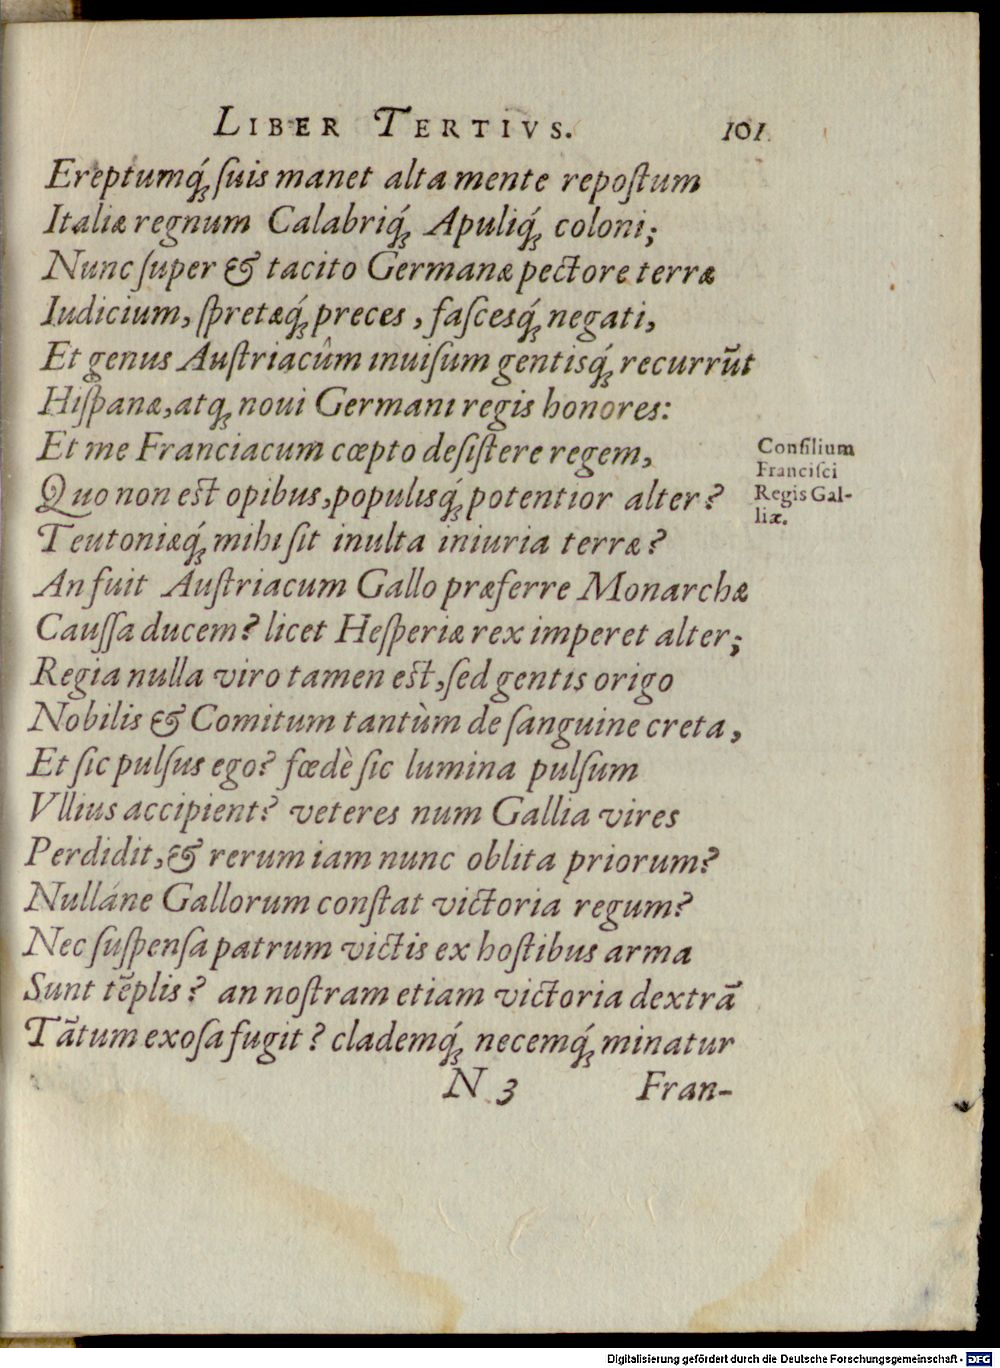 LIBER TERTIVS. 101
Ereptumq́ꝫ ſuis manet alta mente repoſtum
Italiæ regnum Calabriq́ꝫ Apuliq́ꝫ coloni;
Nunc ſuper & tacito Germanæ pectore terræ
Iudicium, ſpretæq́ꝫ preces, faſcesq́ꝫ negati,
Et genus Auſtriacûm inuiſum gentisq́ꝫ recurrũt
Hiſpanæ, atqꝫ noui Germani regis honores:
Et me Franciacum cœpto deſiſtere regem,
Quo non est opibus, populisq́ꝫ potentior alter?
Teutoniæq́ꝫ mihi ſit inulta iniuria terræ?
An fuit Auſtriacum Gallo præferre Monarchæ
Cauſſa ducem? licet Heſperiæ rex imperet alter;
Regia nulla viro tamen est, ſed gentis origo
Nobilis & Comitum tantùm de ſanguine creta,
Et ſic pulſus ego? fœdè ſic lumina pulſum
Vllius accipient? veteres num Gallia vires
Perdidit, & rerum iam nunc oblita priorum?
Nulláne Gallorum conſtat victoria regum?
Nec ſuſpenſa patrum victis ex hoſtibus arma
Sunt tẽplis? an noſtram etiam victoria dextrã
Tãtum exoſa fugit? clademq́ꝫ necemq́ꝫ minatur
N 3 Fran-
Conſilium
Franciſci
Regis Gal-
liæ.
Digitalisierung gefördert durch die Deutsche Forschungsgemeinschaft - DFG